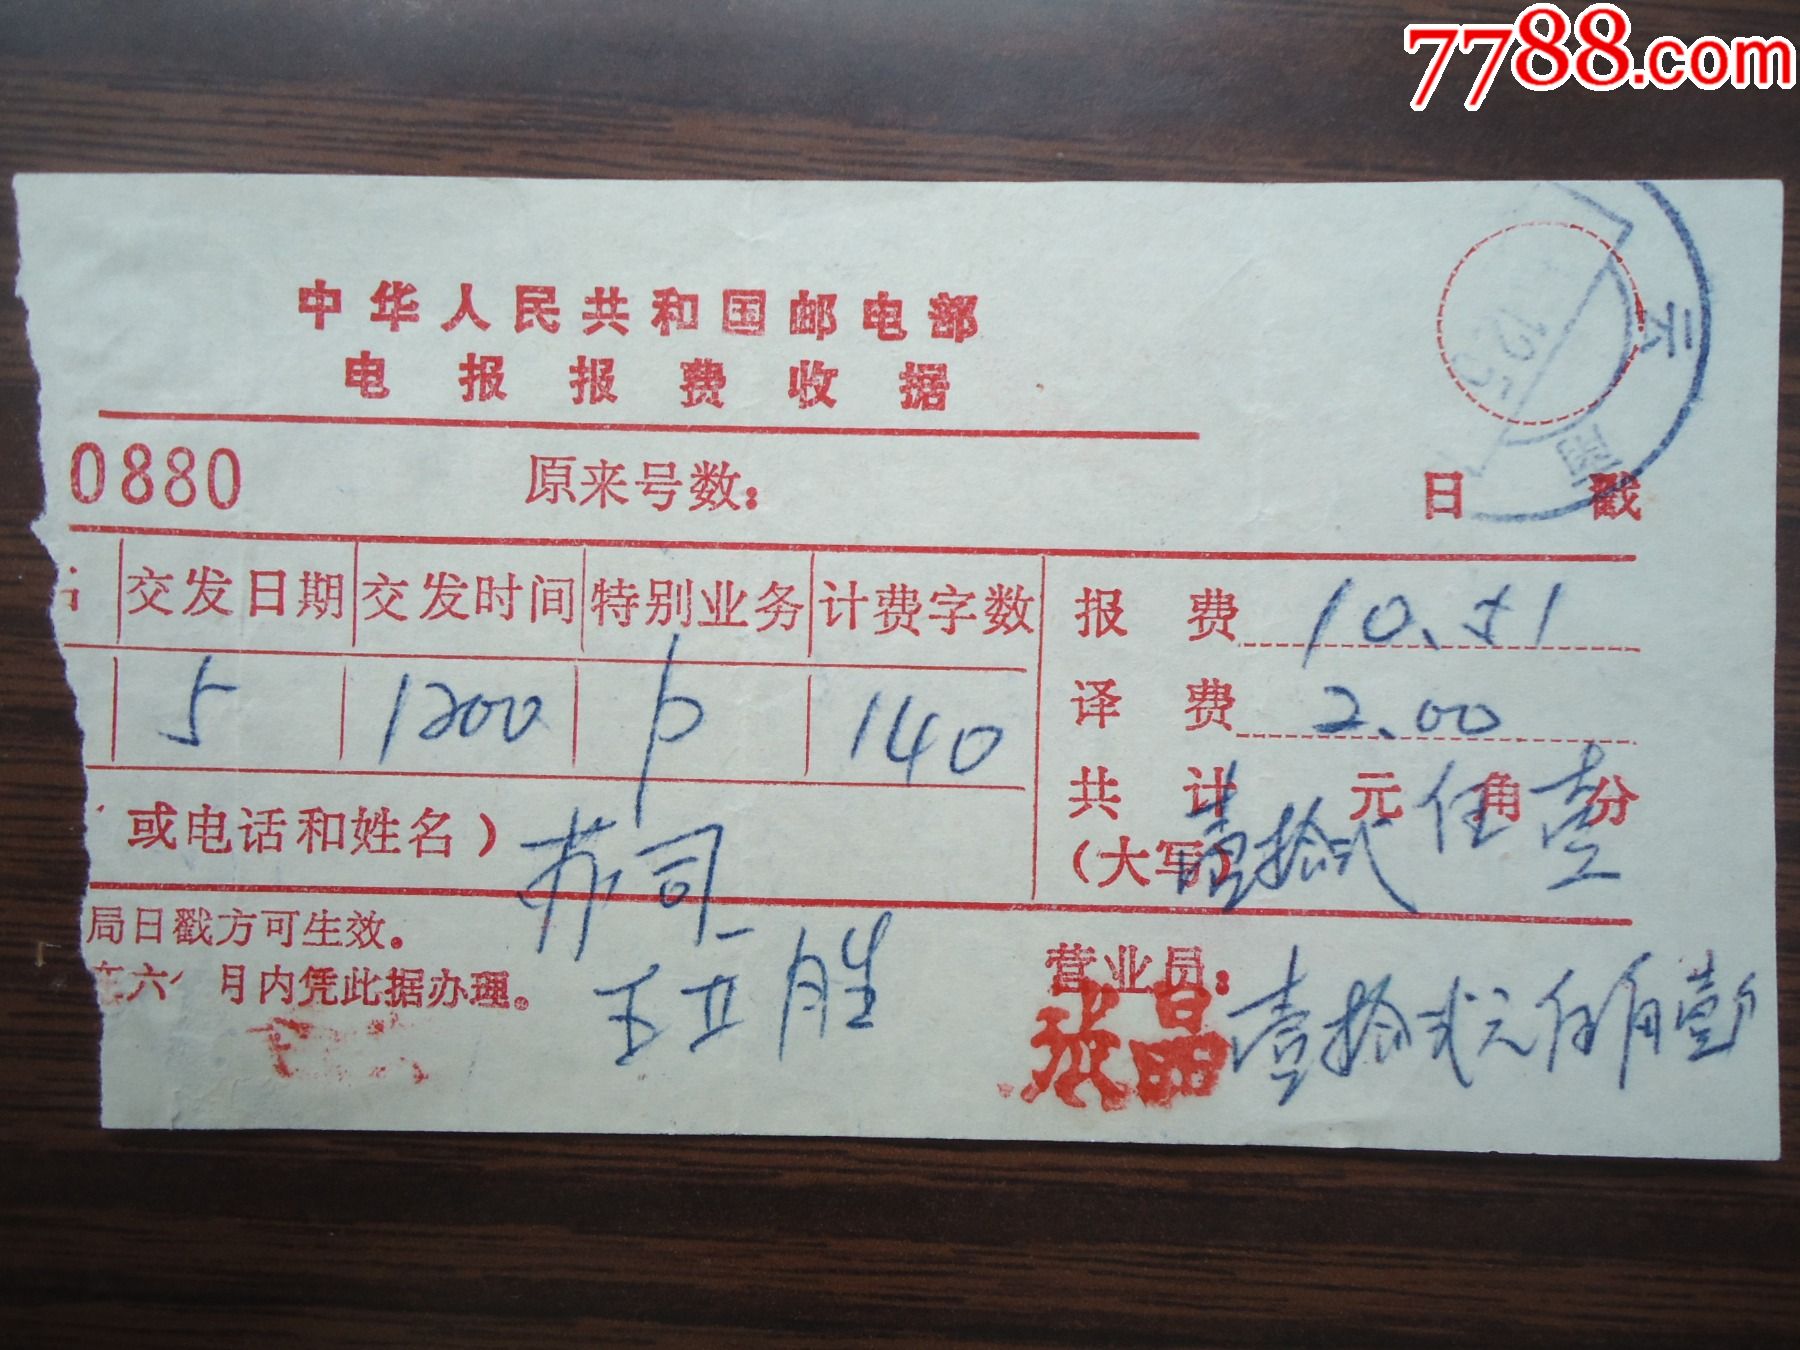 7788.com
中华人民共和国邮电部
电报报费收据
云
南
12.5
0880 原来号数: 日 戳
交发日期 交发时间 特别业务 计费字数 报 费 10.51
5 1200 140 译 费 2.00
共 计 元 角 分
或电话和姓名) 苏司 (大写) 壹拾贰 伍 壹
局日戳方可生效。
六个月内凭此据办理。 王亚胜 营业员: 张晶 壹拾贰元伍角壹分